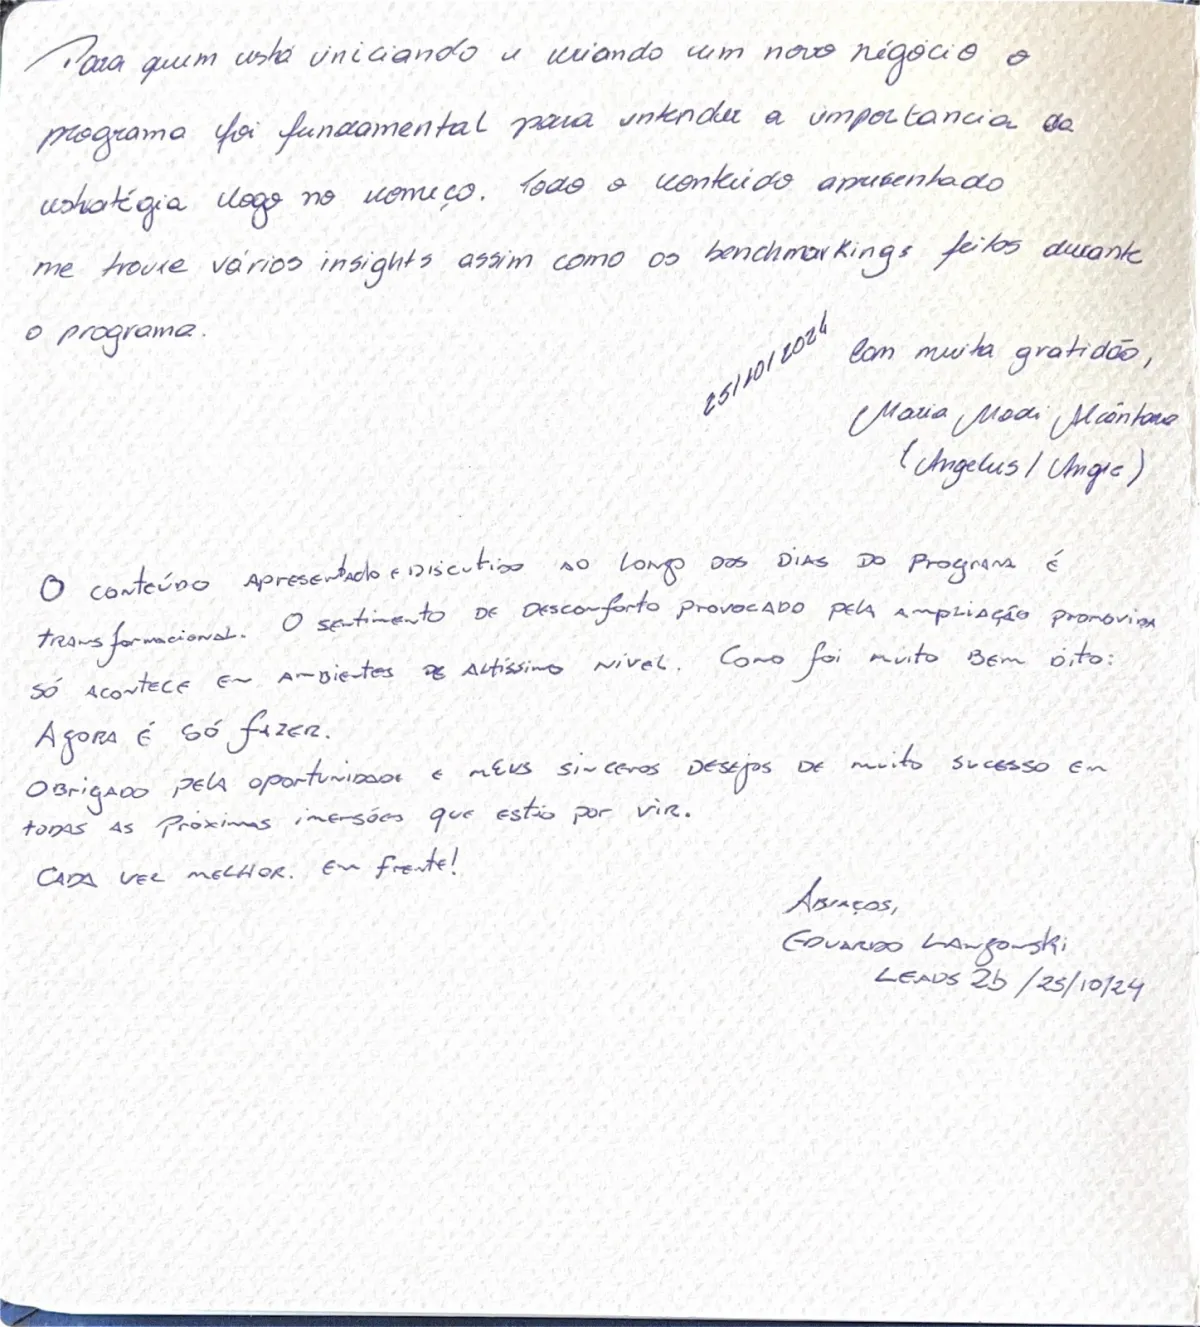 Para quem está iniciando e criando um novo négócio o
programa foi fundamental para entender a importancia da
estratégia logo no começo. Todo o conteúdo apresentado
me trouxe vários insights assim como os benchmarkings feitos durante
o programa.
25/10/2024
Com muita gratidão,
Maria Modi Alcântara
(Angelus / Angie)
O conteúdo apresentado e discutido ao longo dos dias do programa é
transformacional. O sentimento de desconforto provocado pela ampliação promovida
só acontece em ambientes de altíssimo nível. Como foi muito bem dito:
Agora é só fazer.
Obrigado pela oportunidade e meus sinceros desejos de muito sucesso em
todas as próximas imersões que estão por vir.
Cada vez melhor. Em frente!
Abraços,
Eduardo Langowski
LEADS 26 / 25/10/24